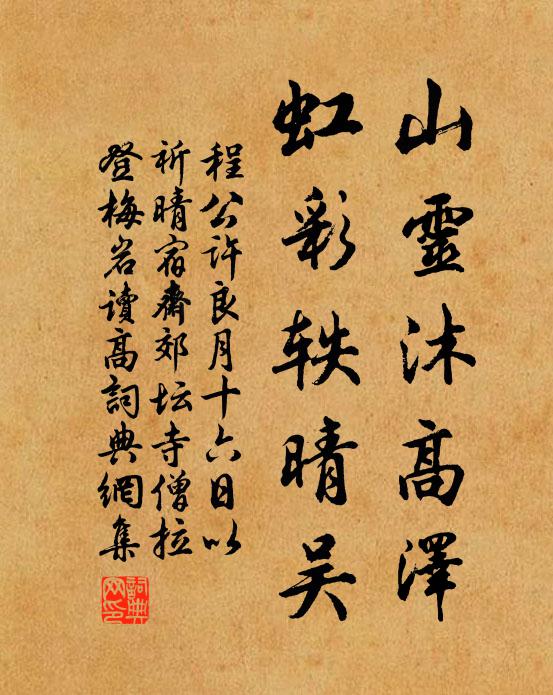 山靈沐高澤
虹彩軼晴吴
程公许良月十六日以
祈晴宿齋郊坛寺僧拉
登梅岩讀高詞典網集
詞典網印